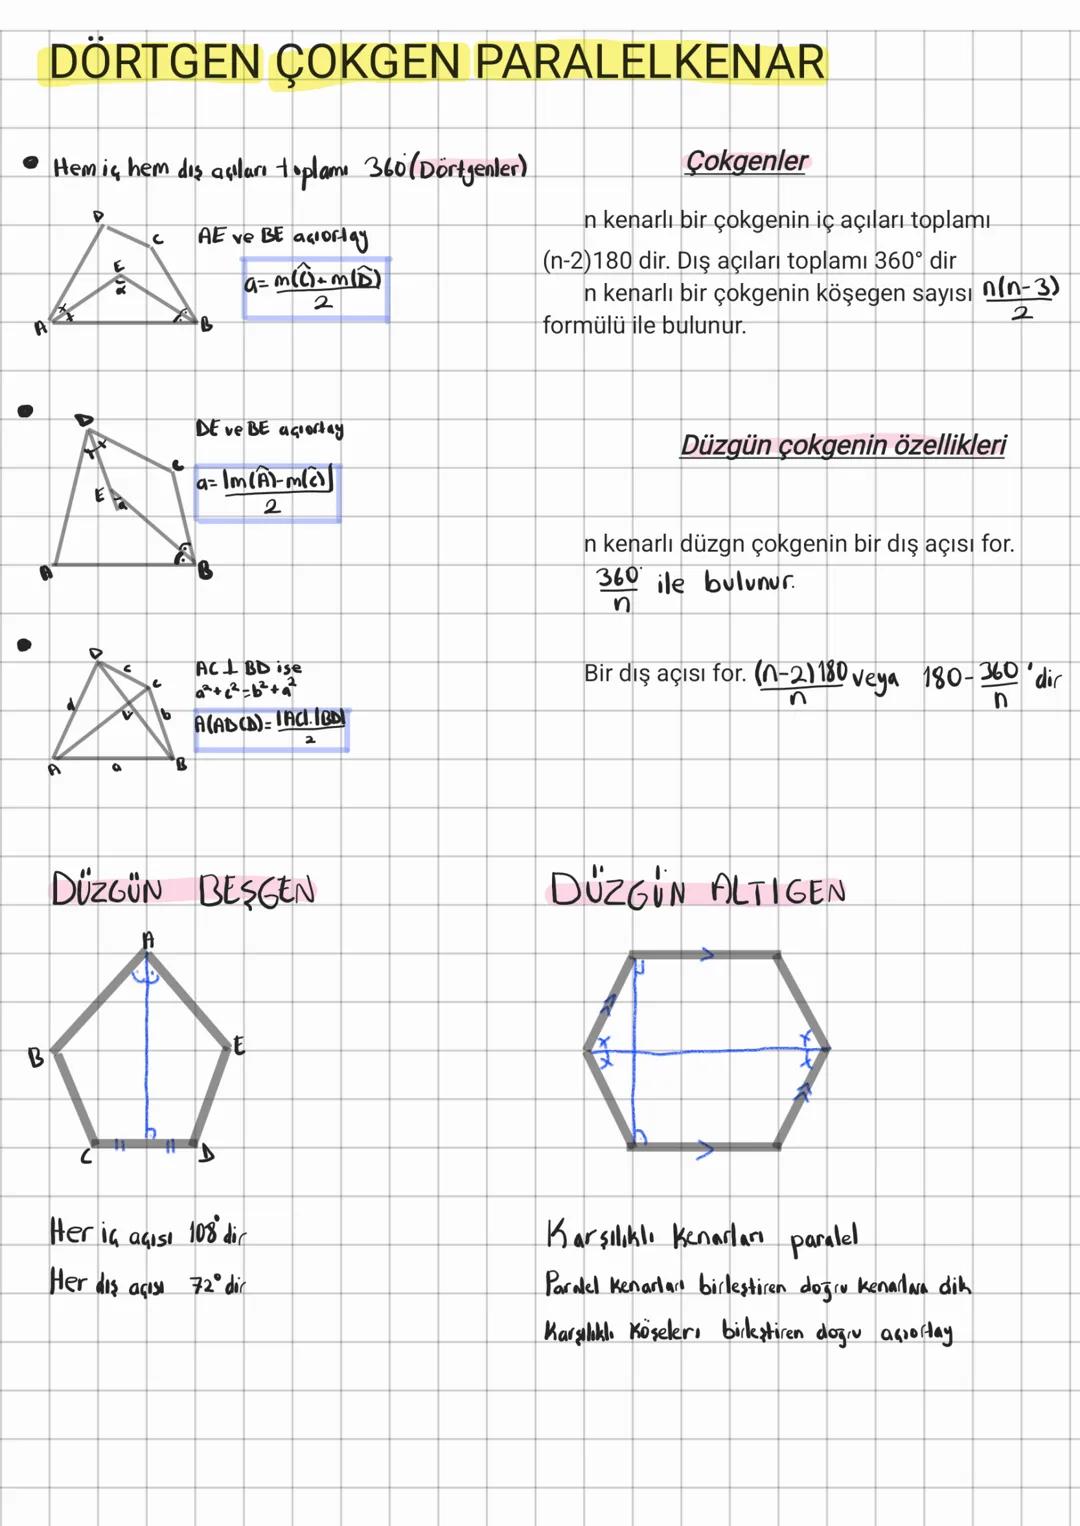 DÖRTGEN ÇOKGEN PARALELKENAR
Hem iç hem dış açıları toplamı 360° (Dörtgenler)
D
C
E
α
x
x
A
B
AE ve BE açıortay
a = m(Ĉ) + m(D̂)
2
D
x
x
C
E
a
A
B
DE ve BE açıortay
a = |m(Â) - m(ĉ)|
2
D
c
C
d
b
A
a
B
AC ⊥ BD ise
a² + c² = b² + a²
A(ABCD) = |AC|.|BD|
2
Çokgenler
n kenarlı bir çokgenin iç açıları toplamı
(n-2)180 dir. Dış açıları toplamı 360° dir
n kenarlı bir çokgenin köşegen sayısı n(n-3)
2
formülü ile bulunur.
Düzgün çokgenin özellikleri
n kenarlı düzgn çokgenin bir dış açısı for.
360° ile bulunur.
n
Bir dış açısı for. (n-2)180 veya 180 - 360 'dir
n n
DÜZGÜN BEŞGEN
A
B
E
C
D
Her iç açısı 108° dir
Her dış açısı 72° dir
DÜZGÜN ALTIGEN
x
x
x
x
Karşılıklı kenarları paralel
Paralel kenarları birleştiren doğru kenarlara dik
Karşılıklı köşeleri birleştiren doğru açıortay